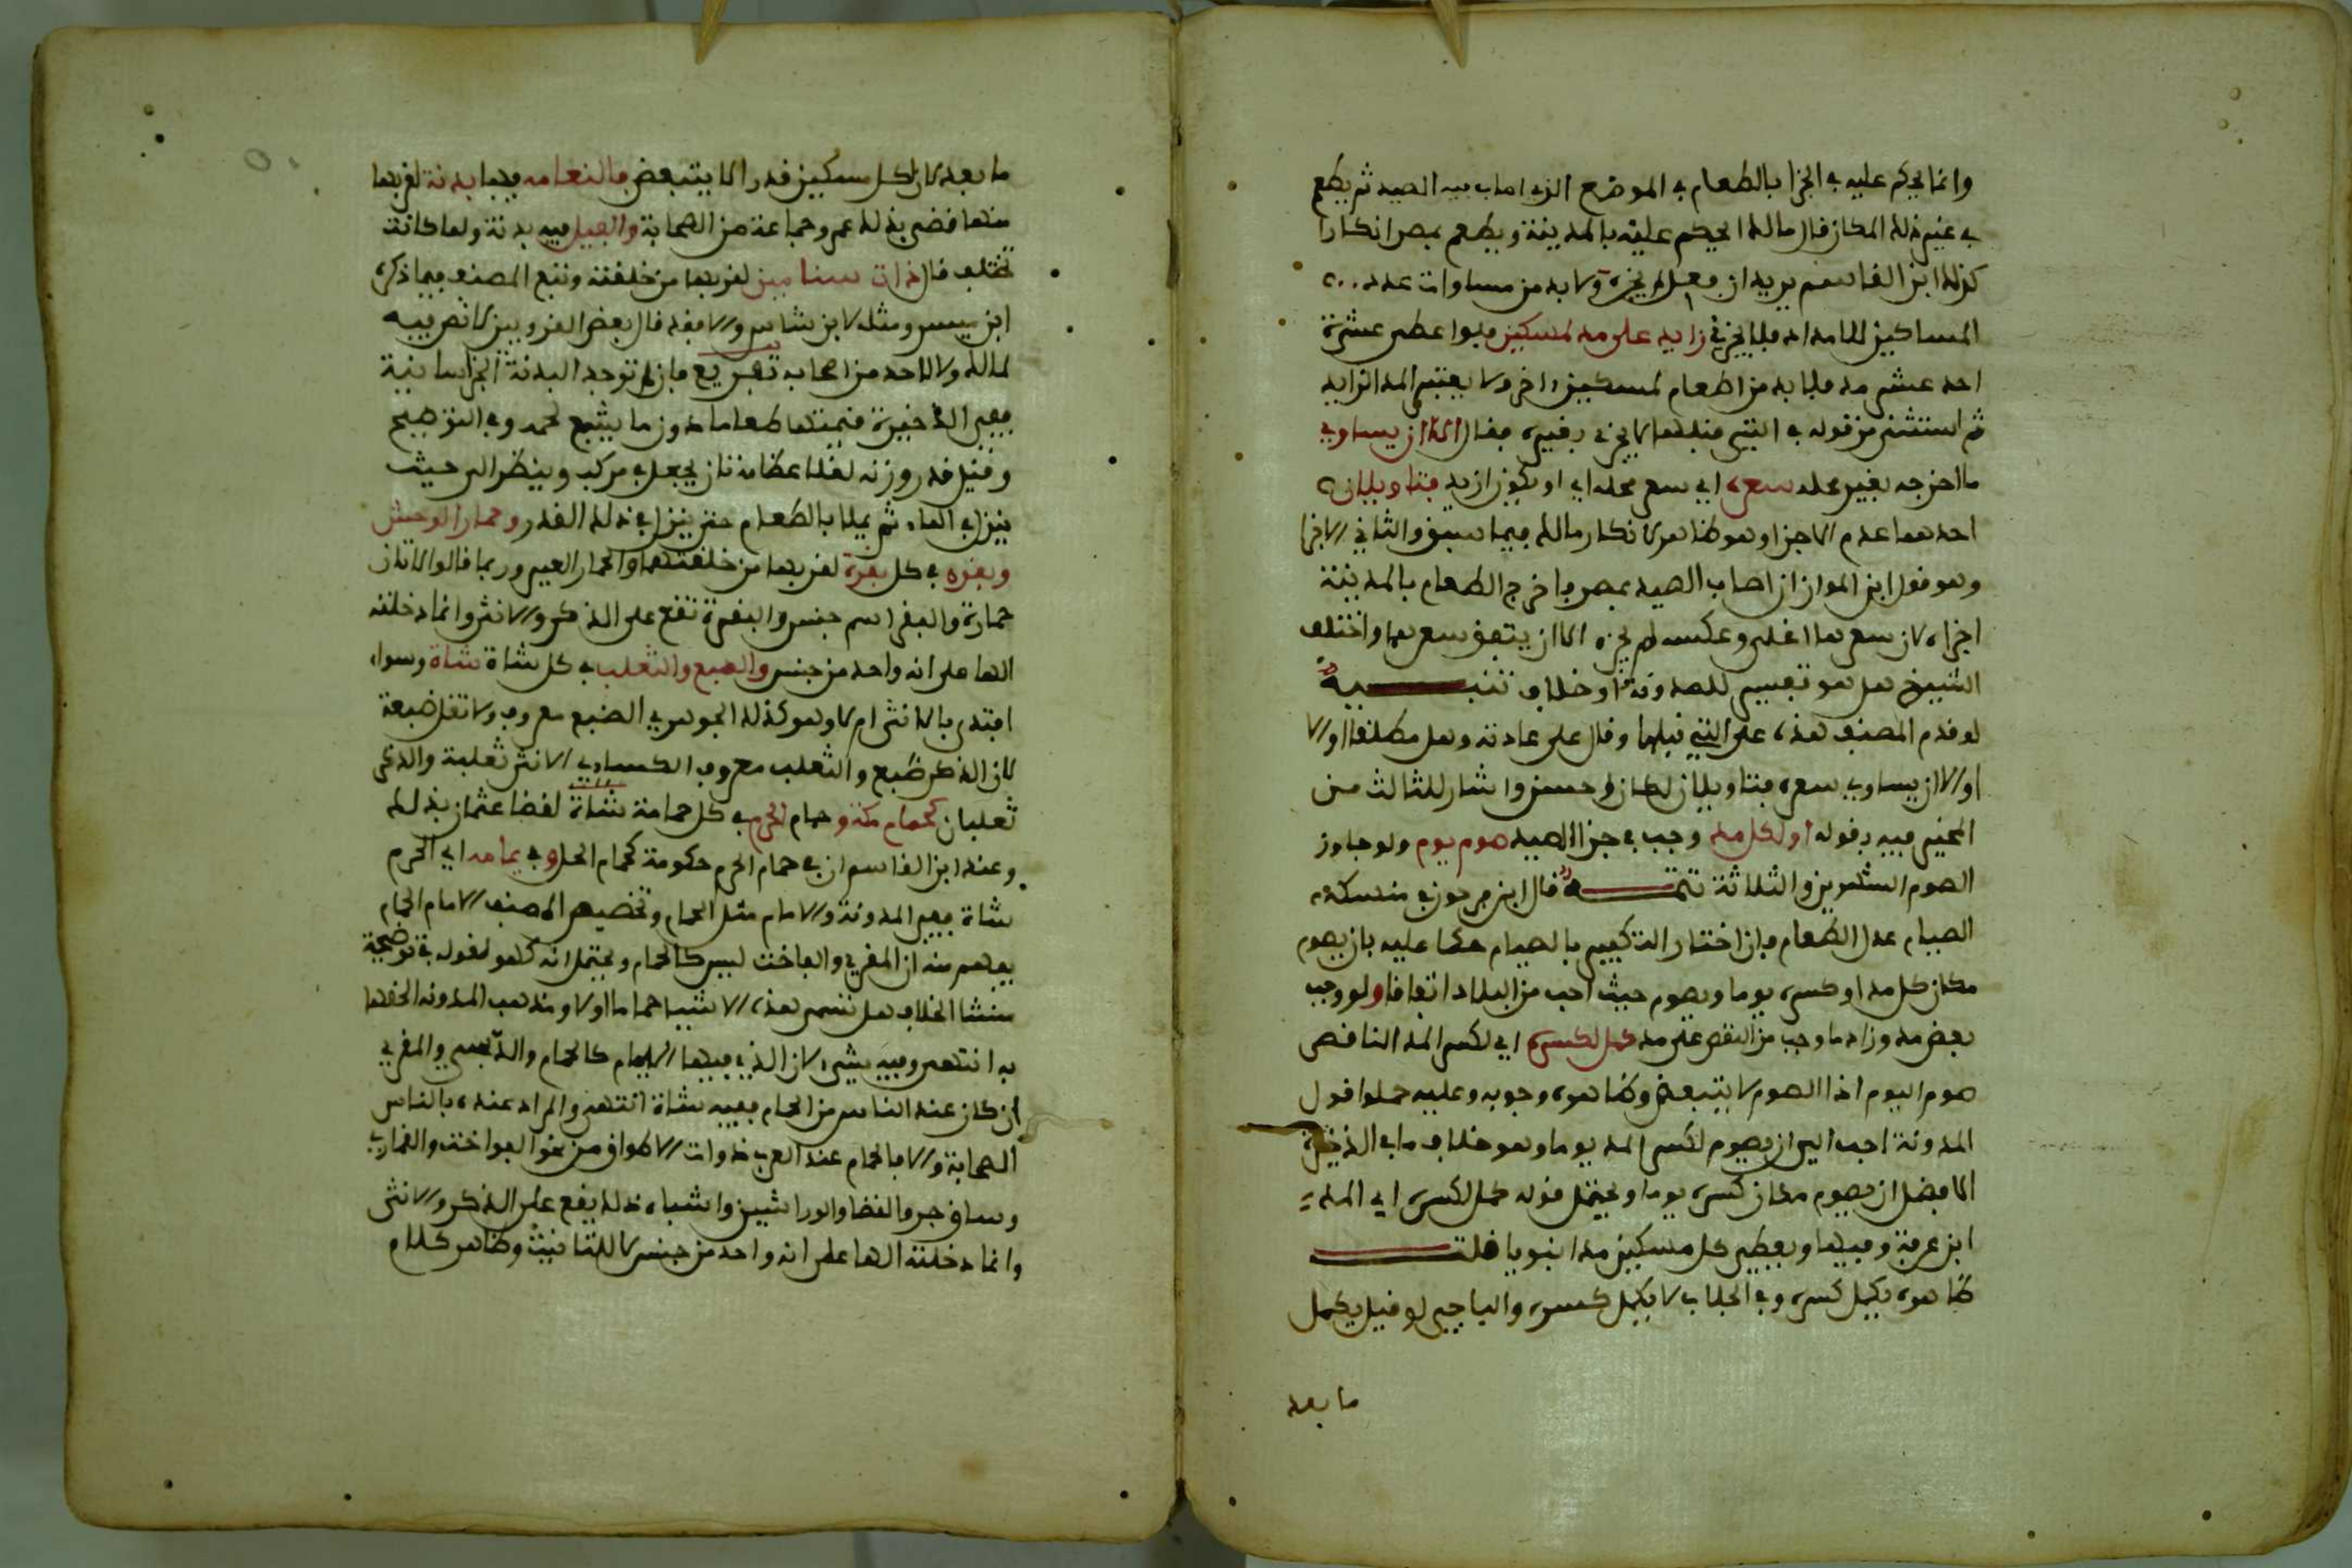 وانما يحكم عليه في الجزا بالطعام في الموضع الذي اصاب فيه الصيد ثم يطعم
في غير ذلك المكان قال مالك ايحكم عليه بالمدينة ويطعم بمصر انكارا
كذلك ابن القاسم يريد ان فعل لم يجزه ولا بد من مساوات عدد
المساكين للامداد فلا يجزي زايد على مد لمسكين فلو اعطى عشرة
احد عشر مد فلا بد من اطعام لمسكين اخر ولا يعتبر المد الزايد
ثم استثنى من قوله في التي قبلها لا يجزي بغيره فقال الا ان يساوي
ما اخرجه بغير محله سعره اي سعر محله اي او يكون ازيد فتاويلان
احدهما عدم الاجزا وهو ظاهر لانكار مالك فيما سبق والثاني الاجزا
وهو قول ابن المواز ان اصاب الصيد بمصر فاخرج الطعام بالمدينة
اجزاه لان سعرها اغلى وعكسه لم يجزه الا ان يتفق سعرهما واختلف
الشيوخ هل هو تفسير للمدونة او خلاف تنبيه
لو قدم المصنف هذه على التي قبلها وقال على عادته وهل مطلقا اولا
اولا ان يساوي سعره فتاويلان لكان احسن واشار للثالث من
المخير فيه بقوله او لكل مد وجب في جزا الصيد صوم يوم ولو جاوز
الصوم الشهرين والثلاثة تتمة قال ابن فرحون في منسكه
الصيام عدل الطعام فان اختار التكفير بالصيام حكما عليه بان يصوم
مكان كل مد او كسره يوما ويصوم حيث احب من البلاد اتفاقا ولو وجب
بعض مد وزاد ما وجب من النقص على مد كمل لكسره اي لكسر المد الناقص
صوم اليوم اذ الصوم لا يتبعض وظاهره وجوبه وعليه حملوا قول
المدونة احب الي ان يصوم لكسر المد يوما وهو خلاف ما في الذخيرة
الافضل ان يصوم مكان كسره يوما ويحتمل قوله كمل لكسره اي المد
ابن عرفة وفيها ويعطى كل مسكين مدا نبويا قلت
ظاهره يكمل كسره وفي الجلاب لا يكمل كسره والباجي لو قيل يكمل
ما بعد
ما بعد كان لكل مسكين قدر الا يتبعض فالنعامه فيها بدنة لقربها
منها قضى بذلك عمر وجماعة من الصحابة والفيل فيه بدنة ولما كانت
تختلف قال ذات سنامين لقربها من خلقته وتبع المصنف فيما ذكره
ابن يسير ومثله لابن شاس والا فقد قال بعض القرويين لا نص فيه
لمالك ولا لاحد من اصحابه تفريع فان لم توجد البدنة الخراسانية
ففي الذخيرة قيمتها طعاما دون ما يشبع لحمه وفي التوضيح
وقيل قدر وزنه لغلا عظامه بان يجعل في مركب وينظر الى حيث
ينزل في الماء ثم يملا بالطعام حتى ينزل في ذلك القدر وحمار الوحش
وبقره في كل بقرة لقربها من خلقتهما والحمار العير وربما قالوا للاتان
حمارة والبقر اسم جنس والبقرة تقع على الذكر والانثى وانما دخلته
الها على انه واحد من جنس والضبع والثعلب في كل شاة شاة وسواء
افتدى بالانثى ام لا وهو كذلك الجوهري الضبع معروف ولا تقل ضبعة
لان الذكر ضبع والثعلب معروف الكساءي الانثى ثعلبة والذكر
ثعلبان كحمام مكة وحمام الحرم في كل حمامة شاة لقضا عثمان بذلك
وعند ابن القاسم ان في حمام الحرم حكومة كحمام الحل وفي يمامه اي الحرم
شاة ففي المدونة والامام مثل الحمام وتخصيص المصنف الامام الحمام
يفهم منه ان القمري والفاخت ليس كالحمام ويحتمل انه كهو لقوله في توضيحه
منشا الخلاف هل تسمى هذه الاشيا حماما اولا ومذهب المدونة الحقها
به انتهى وفيه شيء لان الذي فيها اليمام كالحمام والدبسي والقمري
ان كان عند الناس من الحمام ففيه شاة انتهى والمراد عنده بالناس
الصحابة والا فالحمام عند العرب ذوات الاطواق من نحو الفواخت والقماري
وساق حر والقطا والوراشين واشباه ذلك يقع على الذكر والانثى
وانما دخلته الها على انه واحد من جنس لا للتانيث وظاهر كلام